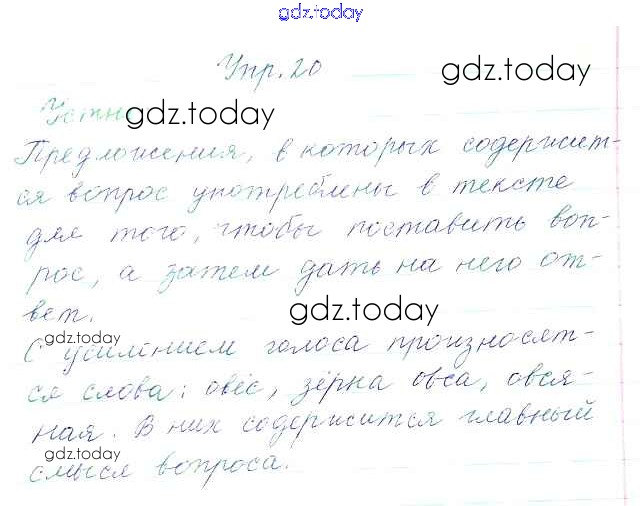 gdz.today
Упр. 20
gdz.today
Устно
gdz.today
Предложения, в которых содержит-
ся вопрос употреблены в тексте
для того, чтобы поставить воп-
рос, а затем дать на него от-
вет.
gdz.today
gdz.today
С усилением голоса произносят-
ся слова: овёс, зёрна овса, овся-
gdz.today
ная. В них содержится главный
gdz.today
смысл вопроса.